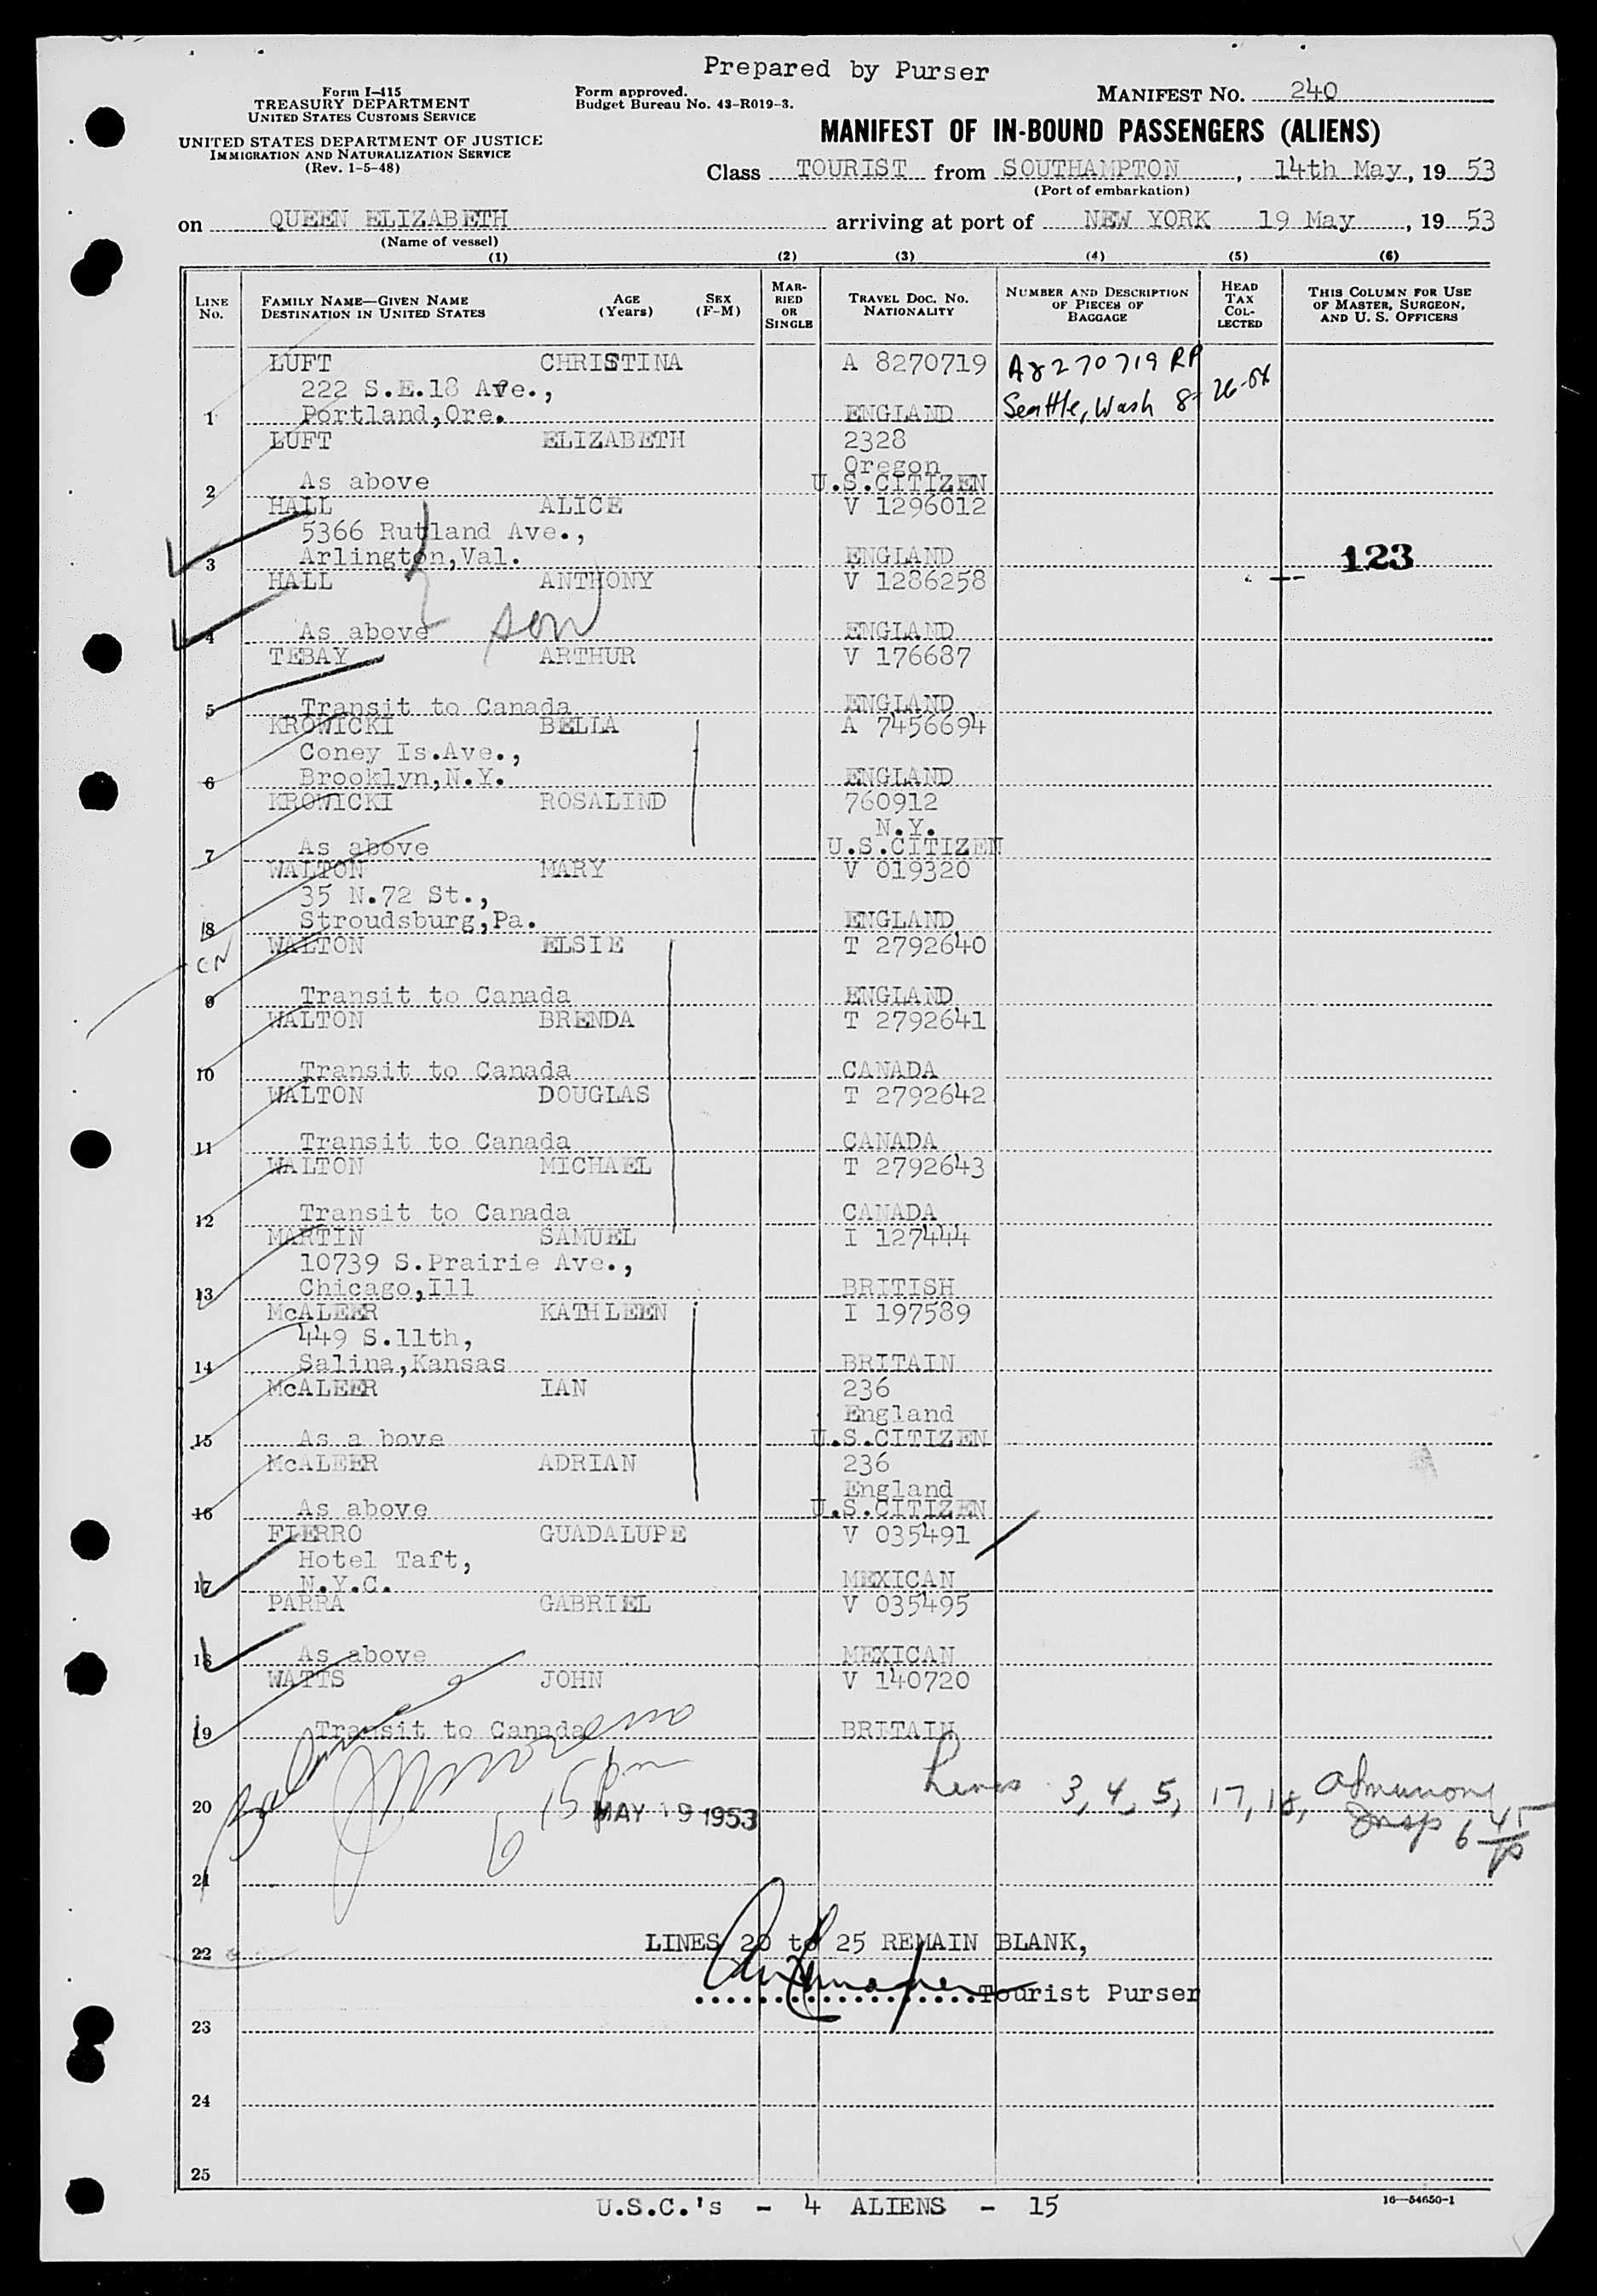 Prepared by Purser
Form I-415
TREASURY DEPARTMENT
UNITED STATES CUSTOMS SERVICE
UNITED STATES DEPARTMENT OF JUSTICE
IMMIGRATION AND NATURALIZATION SERVICE
(Rev. 1-5-48)
Form approved.
Budget Bureau No. 43-R019-3.
MANIFEST NO. 240
MANIFEST OF IN-BOUND PASSENGERS (ALIENS)
Class TOURIST from SOUTHAMPTON, 14th May, 19 53
(Port of embarkation)
on QUEEN ELIZABETH arriving at port of NEW YORK 19 May, 19 53
(Name of vessel)
(1) (2) (3) (4) (5) (6)
LINE No.
FAMILY NAME—GIVEN NAME
DESTINATION IN UNITED STATES
AGE (Years)
SEX (F-M)
MARRIED OR SINGLE
TRAVEL DOC. NO.
NATIONALITY
NUMBER AND DESCRIPTION OF PIECES OF BAGGAGE
HEAD TAX COLLECTED
THIS COLUMN FOR USE OF MASTER, SURGEON, AND U. S. OFFICERS
LUFT CHRISTINA A 8270719 A8270719 RP
222 S.E.18 Ave.,
1 Portland,Ore. ENGLAND Seattle, Wash 8-26-54
LUFT ELIZABETH 2328
Oregon
2 As above U.S.CITIZEN
HALL ALICE V 1296012
5366 Rutland Ave.,
3 Arlington,Val. ENGLAND 123
HALL ANTHONY V 1286258
son
4 As above ENGLAND
TEBAY ARTHUR V 176687
5 Transit to Canada ENGLAND
KROWICKI BELLA A 7456694
Coney Is.Ave.,
6 Brooklyn,N.Y. ENGLAND
KROWICKI ROSALIND 760912
N.Y.
7 As above U.S.CITIZEN
WALTON MARY V 019320
35 N.72 St.,
8 Stroudsburg,Pa. ENGLAND
WALTON ELSIE T 2792640
CN
9 Transit to Canada ENGLAND
WALTON BRENDA T 2792641
10 Transit to Canada CANADA
WALTON DOUGLAS T 2792642
11 Transit to Canada CANADA
WALTON MICHAEL T 2792643
12 Transit to Canada CANADA
MARTIN SAMUEL I 127444
10739 S.Prairie Ave.,
13 Chicago,Ill BRITISH
McALEER KATHLEEN I 197589
449 S.11th,
14 Salina,Kansas BRITAIN
McALEER IAN 236
England
15 As a bove U.S.CITIZEN
McALEER ADRIAN 236
England
16 As above U.S.CITIZEN
FIERRO GUADALUPE V 035491
Hotel Taft,
17 N.Y.C. MEXICAN
PARRA GABRIEL V 035495
18 As above MEXICAN
WATTS JOHN V 140720
19 Transit to Canada BRITAIN
Lines 3, 4, 5, 17, 18,
20 MAY 19 1953
Insp 6 45
21
LINES 20 to 25 REMAIN BLANK,
22
Tourist Purser
23
24
25
U.S.C.'s - 4 ALIENS - 15
16—54650-1